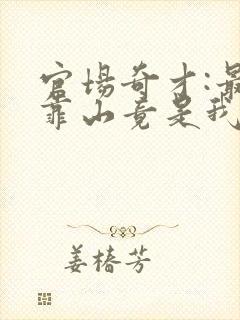 官场奇才:最
靠山竟是我
姜椿芳